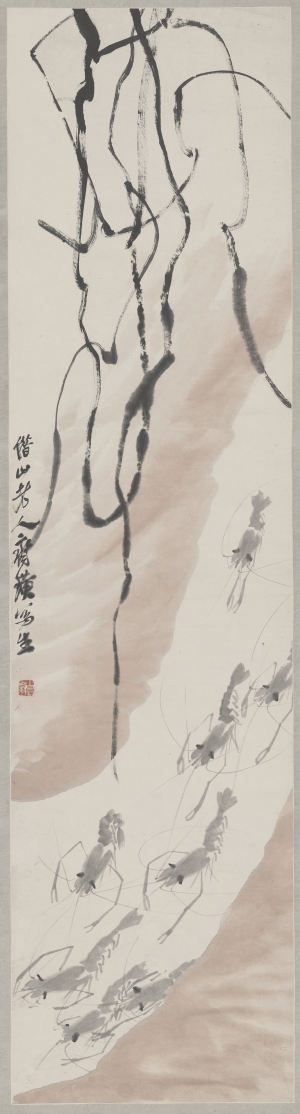 借山老人齊璜寫生